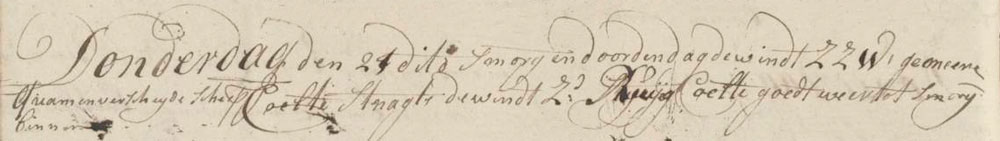 Donderdag den 21 dito Smorg en door den dag de windt ZZW, geoncere
Quaamen verscheyde scheep Coelte Snagts de windt Z: Coelte goedt weer tot Smorg
binnen